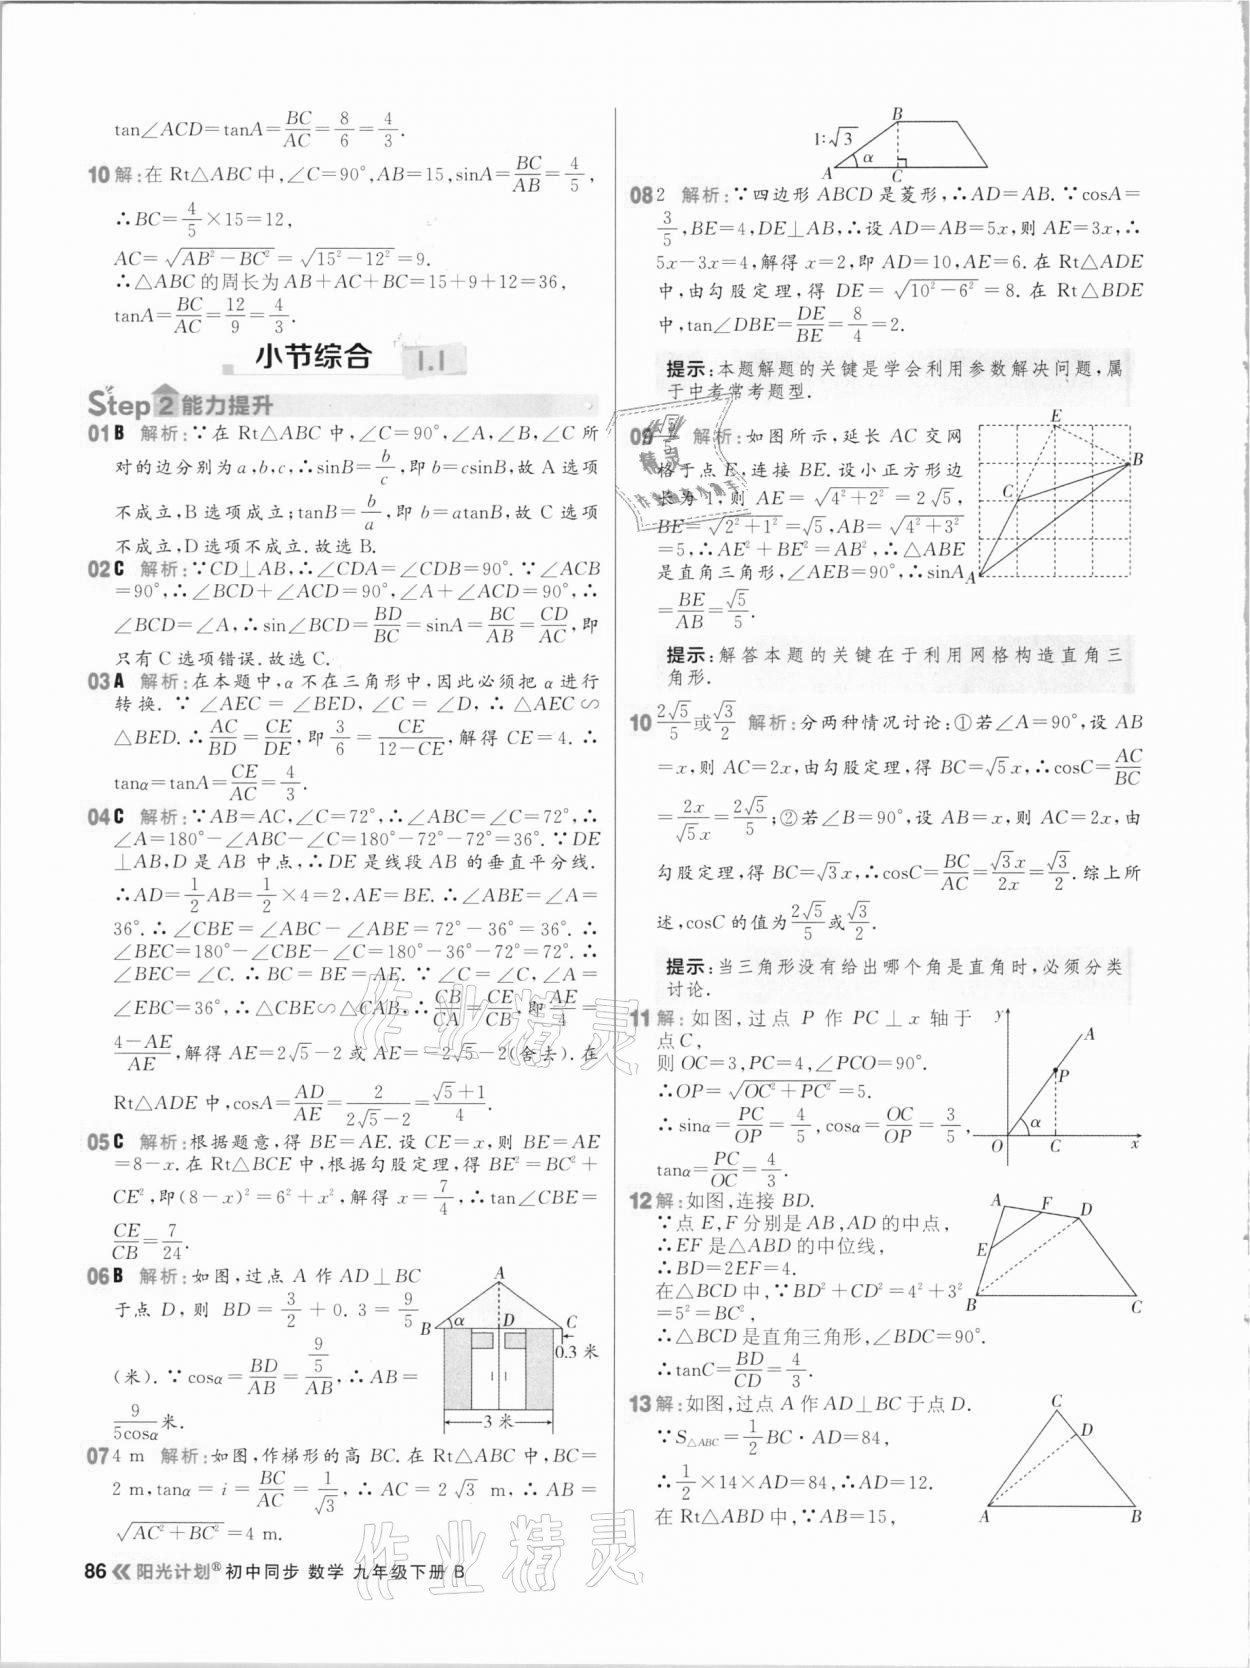 tan∠ACD=tanA=BC/AC=8/6=4/3.
10 解:在 Rt△ABC 中,∠C=90°,AB=15,sinA=BC/AB=4/5,
∴BC=4/5×15=12,
AC=√(AB²-BC²)=√(15²-12²)=9.
∴△ABC 的周长为 AB+AC+BC=15+9+12=36,
tanA=BC/AC=12/9=4/3.
小节综合 1.1
Step 2 能力提升
01 B 解析:∵在 Rt△ABC 中,∠C=90°,∠A,∠B,∠C 所
对的边分别为 a,b,c,∴sinB=b/c,即 b=csinB,故 A 选项
不成立,B 选项成立;tanB=b/a,即 b=atanB,故 C 选项
不成立,D 选项不成立.故选 B.
02 C 解析:∵CD⊥AB,∴∠CDA=∠CDB=90°.∵∠ACB
=90°,∴∠BCD+∠ACD=90°,∠A+∠ACD=90°,∴
∠BCD=∠A,∴sin∠BCD=BD/BC=sinA=BC/AB=CD/AC,即
只有 C 选项错误.故选 C.
03 A 解析:在本题中,α 不在三角形中,因此必须把 α 进行
转换.∵∠AEC=∠BED,∠C=∠D,∴△AEC∽
△BED.∴AC/BD=CE/DE,即3/6=CE/(12-CE),解得 CE=4.∴
tanα=tanA=CE/AC=4/3.
04 C 解析:∵AB=AC,∠C=72°,∴∠ABC=∠C=72°,∴
∠A=180°-∠ABC-∠C=180°-72°-72°=36°.∵DE
⊥AB,D 是 AB 中点,∴DE 是线段 AB 的垂直平分线.
∴AD=1/2AB=1/2×4=2,AE=BE.∴∠ABE=∠A=
36°.∴∠CBE=∠ABC-∠ABE=72°-36°=36°.∴
∠BEC=180°-∠CBE-∠C=180°-36°-72°=72°.∴
∠BEC=∠C.∴BC=BE=AE.∵∠C=∠C,∠A=
∠EBC=36°,∴△CBE∽△CAB,∴CB/CA=CE/CB,即AE/4=
(4-AE)/AE,解得 AE=2√5-2 或 AE=-2√5-2(舍去).在
Rt△ADE 中,cosA=AD/AE=2/(2√5-2)=(√5+1)/4.
05 C 解析:根据题意,得 BE=AE.设 CE=x,则 BE=AE
=8-x.在 Rt△BCE 中,根据勾股定理,得 BE²=BC²+
CE²,即(8-x)²=6²+x²,解得 x=7/4,∴tan∠CBE=
CE/CB=7/24.
06 B 解析:如图,过点 A 作 AD⊥BC
于点 D,则 BD=3/2+0.3=9/5
(米).∵cosα=BD/AB=(9/5)/AB,∴AB=
9/(5cosα)米.
A
B α D C
0.3 米
3 米
07 4 m 解析:如图,作梯形的高 BC.在 Rt△ABC 中,BC=
2 m,tanα=i=BC/AC=1/√3,∴AC=2√3 m,∴AB=
√(AC²+BC²)=4 m.
86 阳光计划® 初中同步 数学 九年级下册 B
B
1:√3
α
A C
08 2 解析:∵四边形 ABCD 是菱形,∴AD=AB.∵cosA=
3/5,BE=4,DE⊥AB,∴设 AD=AB=5x,则 AE=3x,∴
5x-3x=4,解得 x=2,即 AD=10,AE=6.在 Rt△ADE
中,由勾股定理,得 DE=√(10²-6²)=8.在 Rt△BDE
中,tan∠DBE=DE/BE=8/4=2.
提示:本题解题的关键是学会利用参数解决问题,属
于中考常考题型.
09 √5/5 解析:如图所示,延长 AC 交网
格于点 E,连接 BE.设小正方形边
长为 1,则 AE=√(4²+2²)=2√5,
BE=√(2²+1²)=√5,AB=√(4²+3²)
=5,∴AE²+BE²=AB²,∴△ABE
是直角三角形,∠AEB=90°,∴sinA
=BE/AB=√5/5.
E
B
C
A
提示:解答本题的关键在于利用网格构造直角三
角形.
10 2√5/5或√3/2 解析:分两种情况讨论:①若∠A=90°,设 AB
=x,则 AC=2x,由勾股定理,得 BC=√5x,∴cosC=AC/BC
=2x/(√5x)=2√5/5;②若∠B=90°,设 AB=x,则 AC=2x,由
勾股定理,得 BC=√3x,∴cosC=BC/AC=√3x/2x=√3/2.综上所
述,cosC 的值为2√5/5或√3/2.
提示:当三角形没有给出哪个角是直角时,必须分类
讨论.
11 解:如图,过点 P 作 PC⊥x 轴于
点 C,
则 OC=3,PC=4,∠PCO=90°.
∴OP=√(OC²+PC²)=5.
∴sinα=PC/OP=4/5,cosα=OC/OP=3/5,
tanα=PC/OC=4/3.
y
A
P
α
O C x
12 解:如图,连接 BD.
∵点 E,F 分别是 AB,AD 的中点,
∴EF 是△ABD 的中位线,
∴BD=2EF=4.
在△BCD 中,∵BD²+CD²=4²+3²
=5²=BC²,
∴△BCD 是直角三角形,∠BDC=90°.
∴tanC=BD/CD=4/3.
A F D
E
B C
13 解:如图,过点 A 作 AD⊥BC 于点 D.
∵S△ABC=1/2BC·AD=84,
∴1/2×14×AD=84,∴AD=12.
在 Rt△ABD 中,∵AB=15,
C
D
A B
作业精灵
作业精灵
精灵